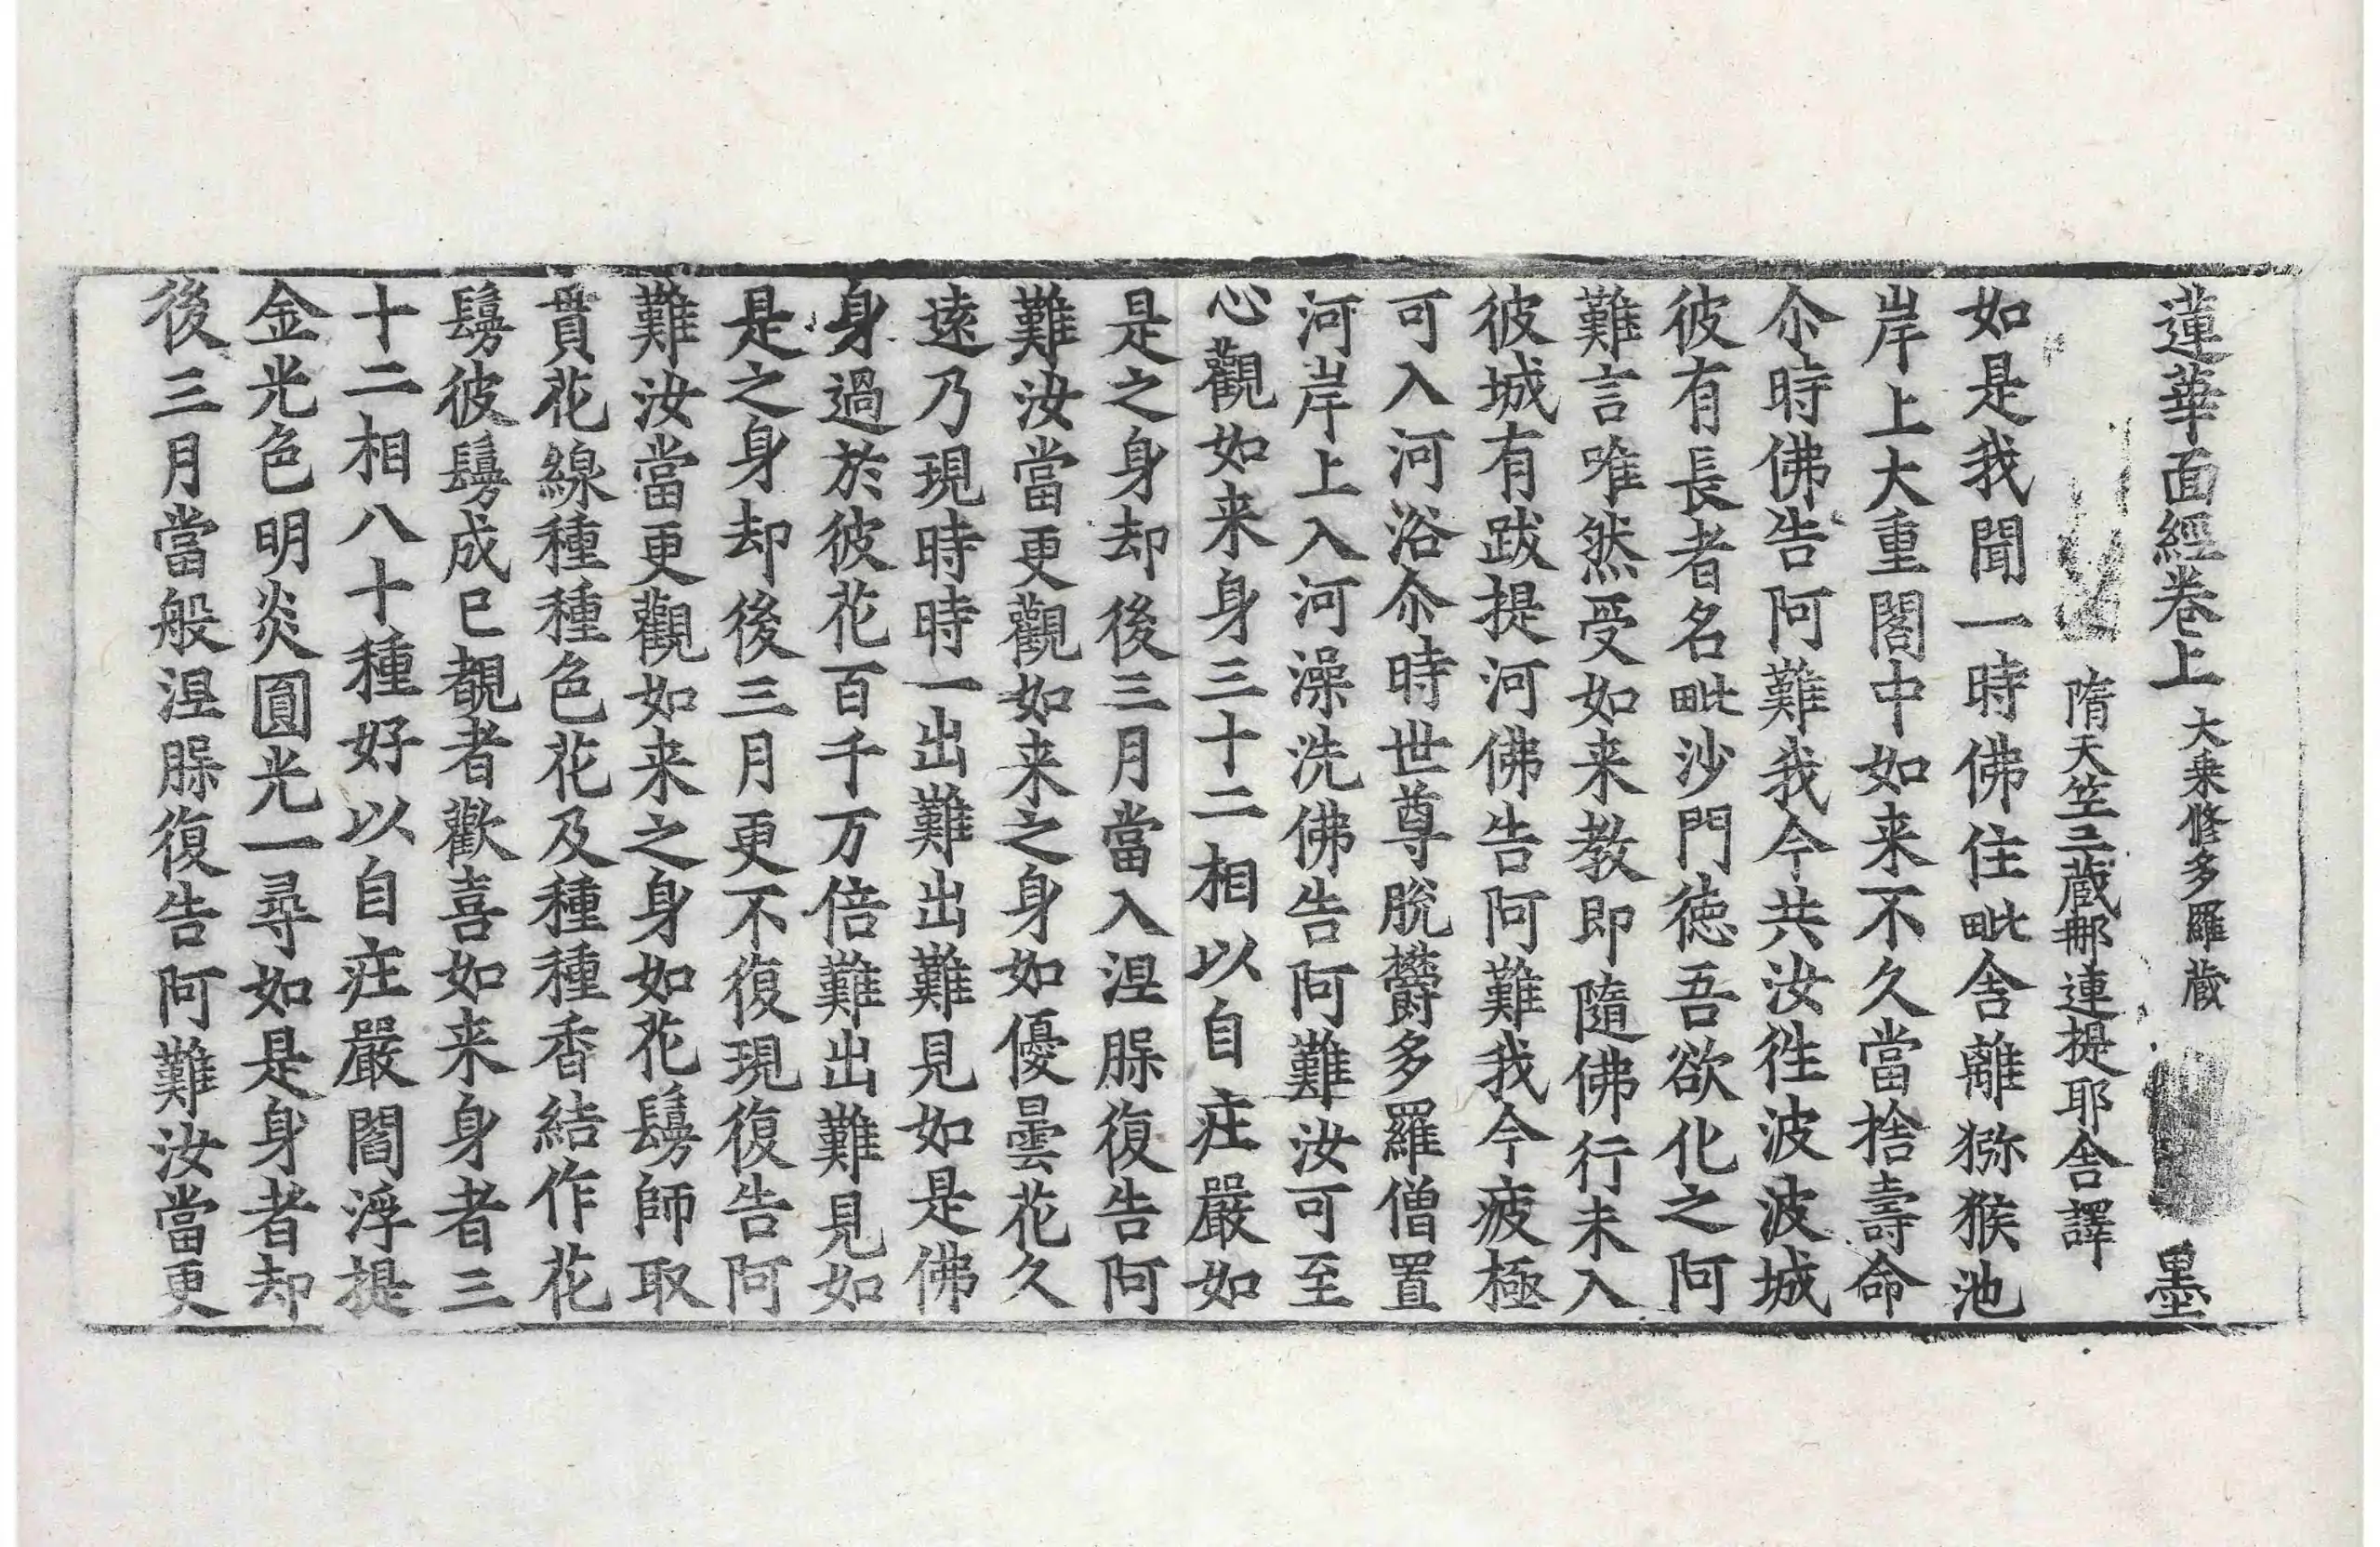 蓮華面經卷上 大乗修多羅蔵 墨
隋天竺三蔵那連提耶舎譯
如是我聞一時佛住毗舎離猕猴池
岸上大重閣中如来不久當捨壽命
尒時佛告阿難我今共汝徃波波城
彼有長者名毗沙門徳吾欲化之阿
難言唯然受如来教即隨佛行未入
彼城有跋提河佛告阿難我今疲極
可入河浴尒時世尊脫欝多羅僧置
河岸上入河澡洗佛告阿難汝可至
心觀如来身三十二相以自庄嚴如
是之身却後三月當入涅槃復告阿
難汝當更觀如来之身如優曇花久
遠乃現時時一出難出難見如是佛
身過於彼花百千万倍難出難見如
是之身却後三月更不復現復告阿
難汝當更觀如来之身如花鬘師取
貫花線種種色花及種種香結作花
鬘彼鬘成已覩者歡喜如来身者三
十二相八十種好以自庄嚴閻浮提
金光色明炎圓光一尋如是身者却
後三月當般涅槃復告阿難汝當更